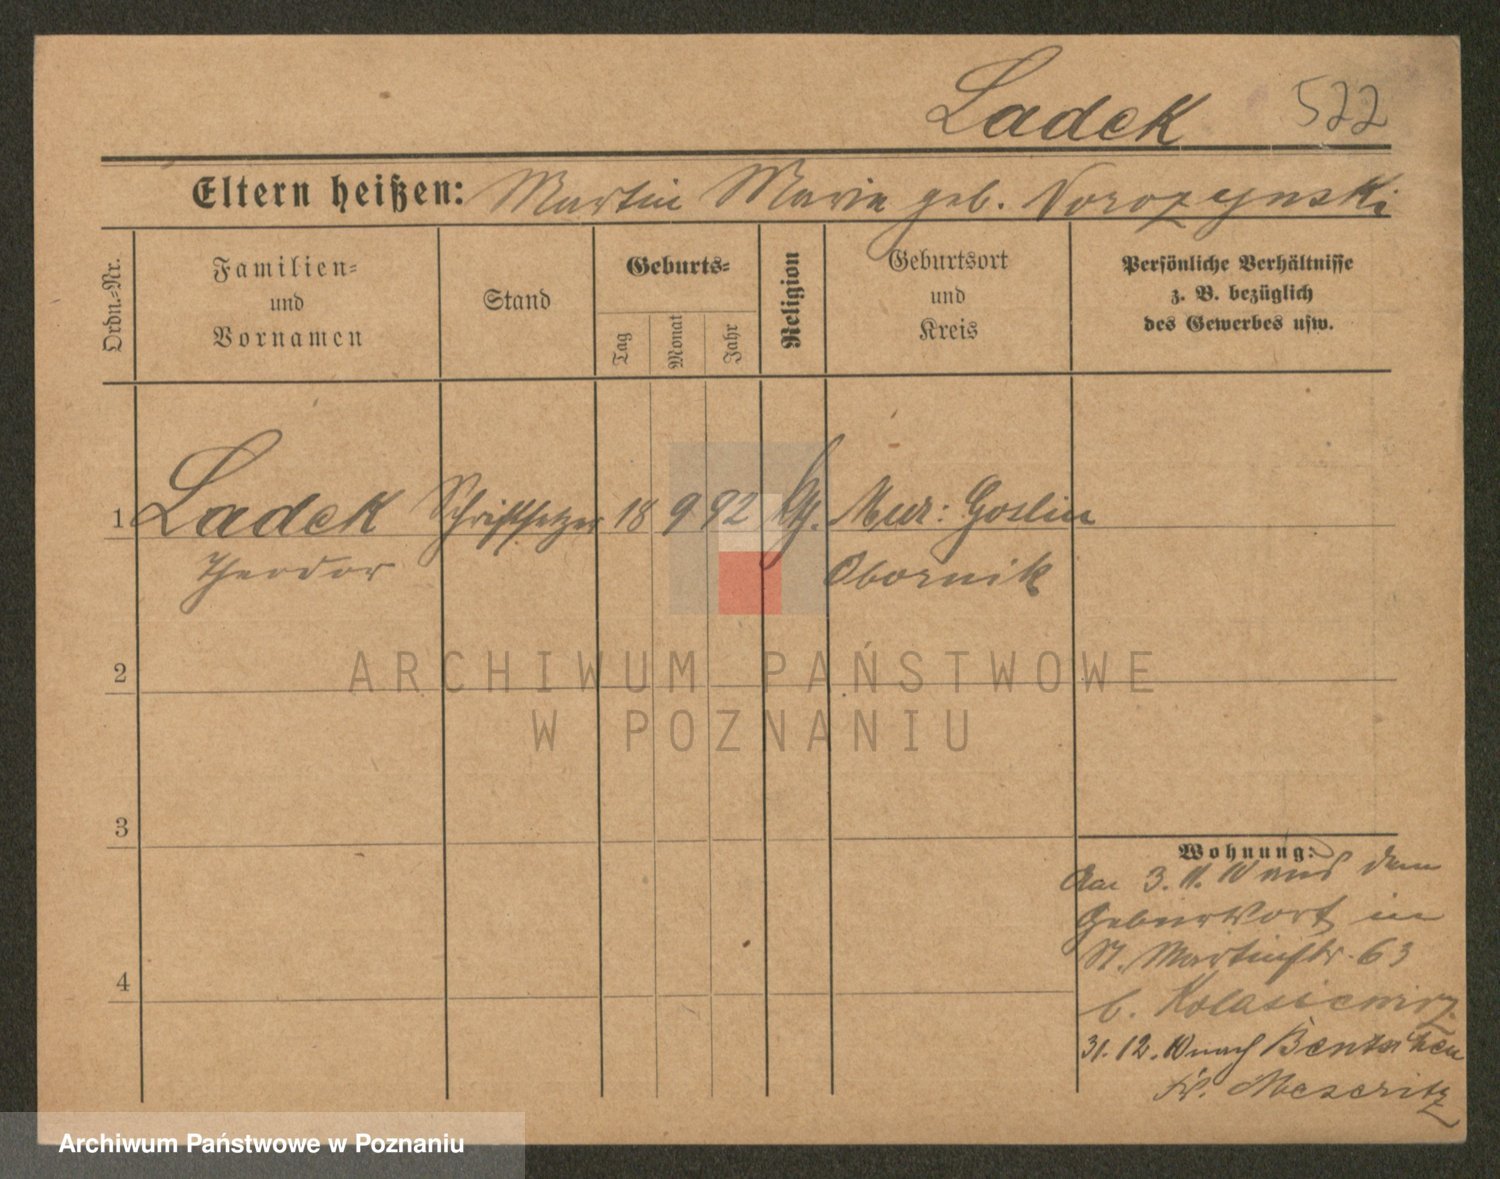 Ladek 522
Eltern heißen: Martin Marie geb.
Ordn.-Nr.
Familien-
und
Vornamen
Stand
Geburts-
Tag
Monat
Jahr
Religion
Geburtsort
und
Kreis
Persönliche Verhältnisse
z. B. bezüglich
des Gewerbes usw.
1 Ladek Schriftsetzer 18 9 92 Mur: Goslin
Theodor Obornik
2
ARCHIWUM PAŃSTWOWE
W POZNANIU
3
Wohnung:
3. 11. 10 aus dem
Geburtsort in
St. Martinstr. 63
b. Kolasiewicz
31. 12. 10 nach Bentschen
Kr. Meseritz
4
Archiwum Państwowe w Poznaniu